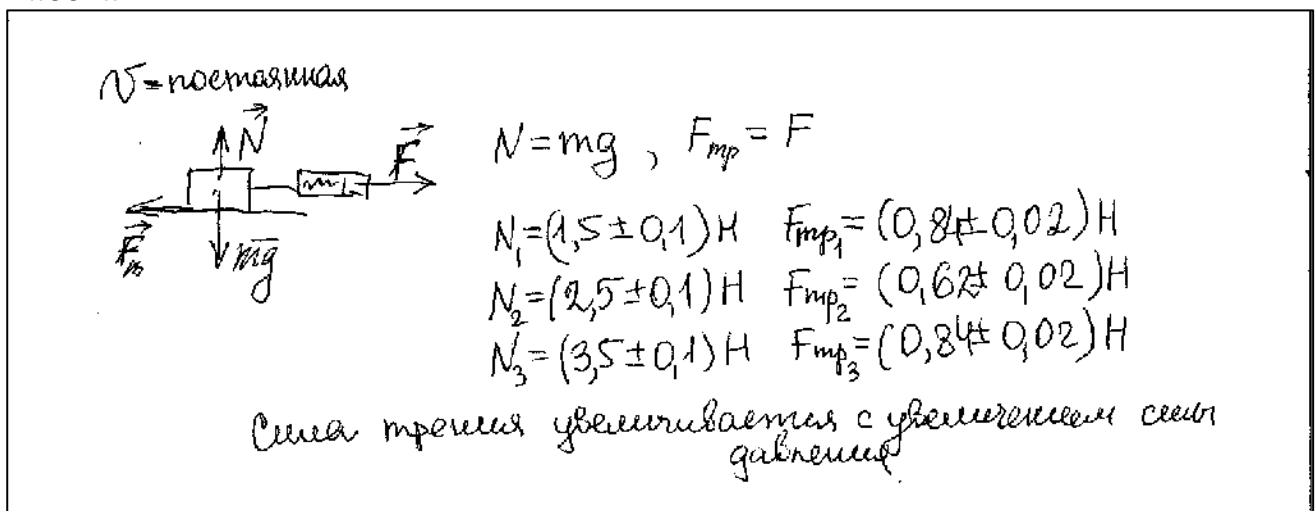 v = постоянная
N
F
Fт
mg
N = mg , Fтр = F
N₁ = (1,5 ± 0,1) Н Fтр₁ = (0,84 ± 0,02) Н
N₂ = (2,5 ± 0,1) Н Fтр₂ = (0,62 ± 0,02) Н
N₃ = (3,5 ± 0,1) Н Fтр₃ = (0,84 ± 0,02) Н
Сила трения увеличивается с увеличением силы
давления